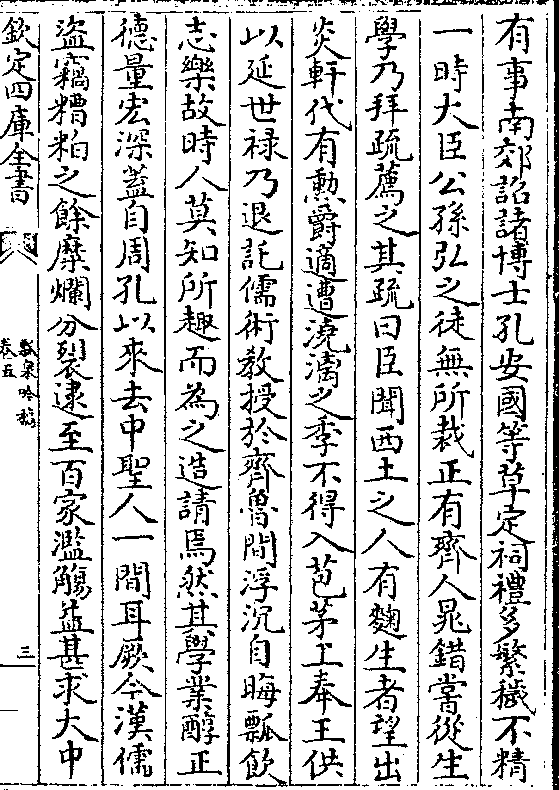 有事南郊詔諸博士孔安國等草定祠禮多繁穢不精
一時大臣公孫弘之徒無所裁正有齊人晁錯當從生
學乃拜疏薦之其疏曰臣聞西土之人有麴生者望出
炎軒代有勲爵適遭澆漓之季不得入苞茅上奉王供
以延世禄乃退託儒術教授於齊魯間浮沉自晦瓢飲
志樂故時人莫知所趣而為之造請焉然其學業醇正
德量宏深蓋自周孔以來去中聖人一間耳厥今漢儒
盜竊糟粕之餘糜爛分裂逮至百家濫觴益甚求大中
欽定四庫全書
瓢泉吟稿
卷五
三